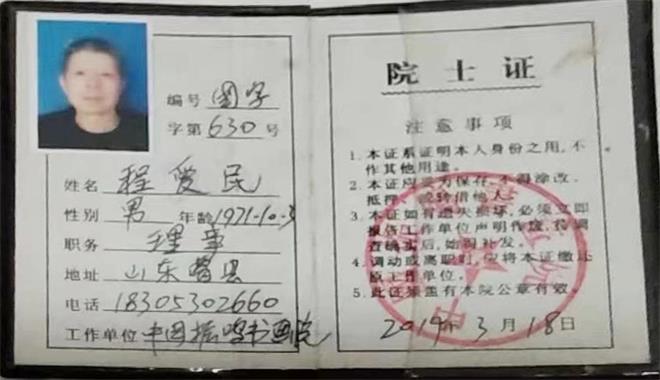 编号 图字
字第 630 号
姓名 程爱民
性别 男 年龄 1971-10-3
职务 理事
地址 山东曹县
电话 18305302660
工作单位 中国 书画院
院士证
注意事项
1. 本证系证明本人身份之用,不
作其他用途。
2. 本证应妥为保存,不得涂改、
抵押、或转借他人。
3. 本证如有遗失损坏,必须立即
报告工作单位声明作废,待调
查确实后,始得补发。
4. 调动或离职时,应将本证缴还
原工作单位。
5. 此证须盖有本院公章有效。
2019年 3 月 18 日